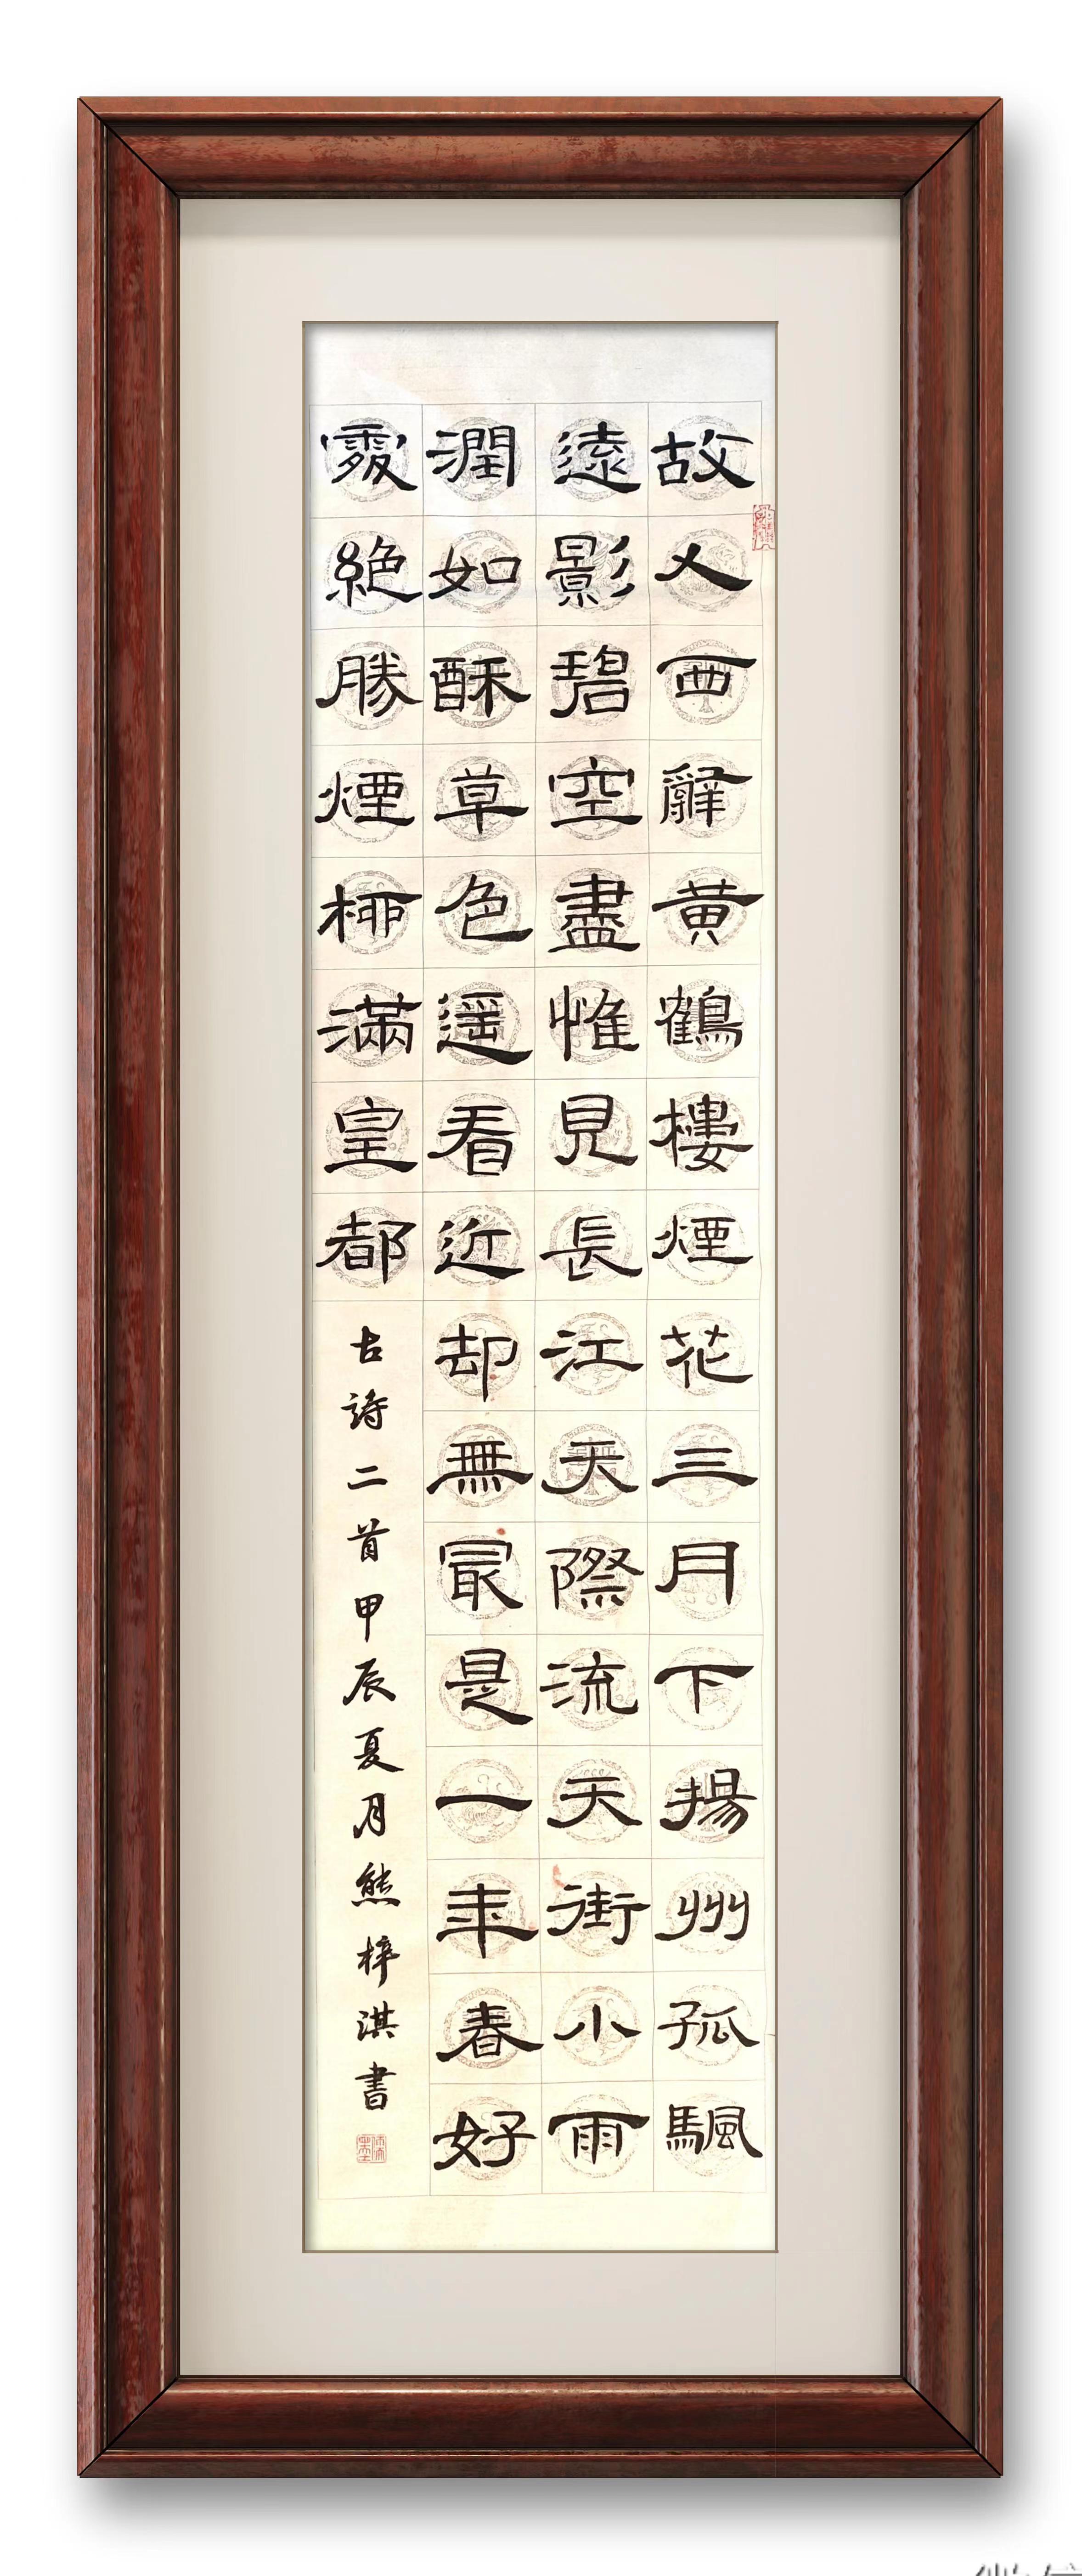 故人西辭黄鶴樓煙花三月下揚州孤颿
遠影碧空盡惟見長江天際流天街小雨
潤如酥草色遥看近却無冣是一年春好
處絶勝煙柳滿皇都
古詩二首甲辰夏月熊梓淇書